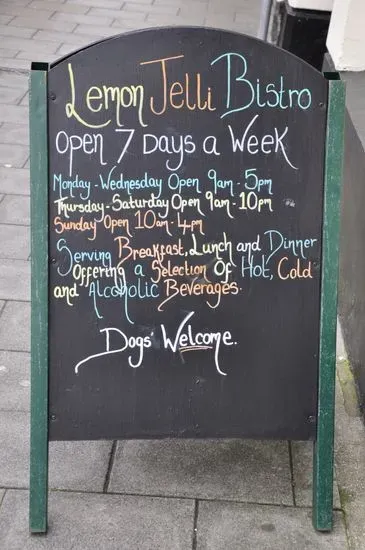 Lemon Jelli Bistro
Open 7 Days a Week
Monday - Wednesday Open 9am - 5pm
Thursday - Saturday Open 9am - 10pm
Sunday Open 10am - 4pm
Serving Breakfast, Lunch and Dinner
Offering a Selection Of Hot, Cold
and Alcoholic Beverages.
Dogs' Welcome.